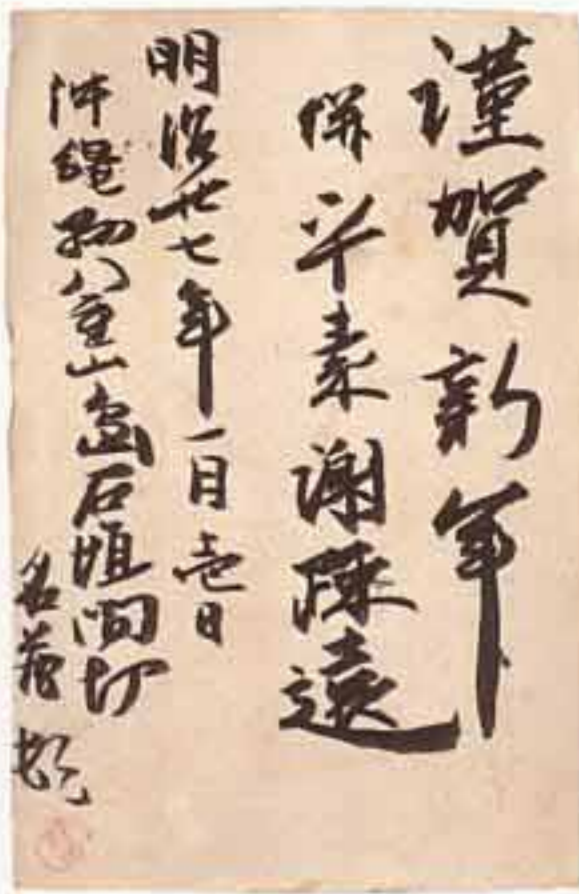 謹賀新年
併平素謝疎遠
明治廿七年一月壱日
沖縄縣八重山島石垣間切
名蔵